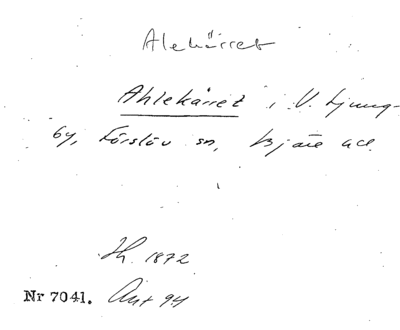 Alekärret
Ahlekärret i V. Ljung-
by, Förslöv sn, Bjäre hd.
Th. 1872
Nr 7041. Ant 94